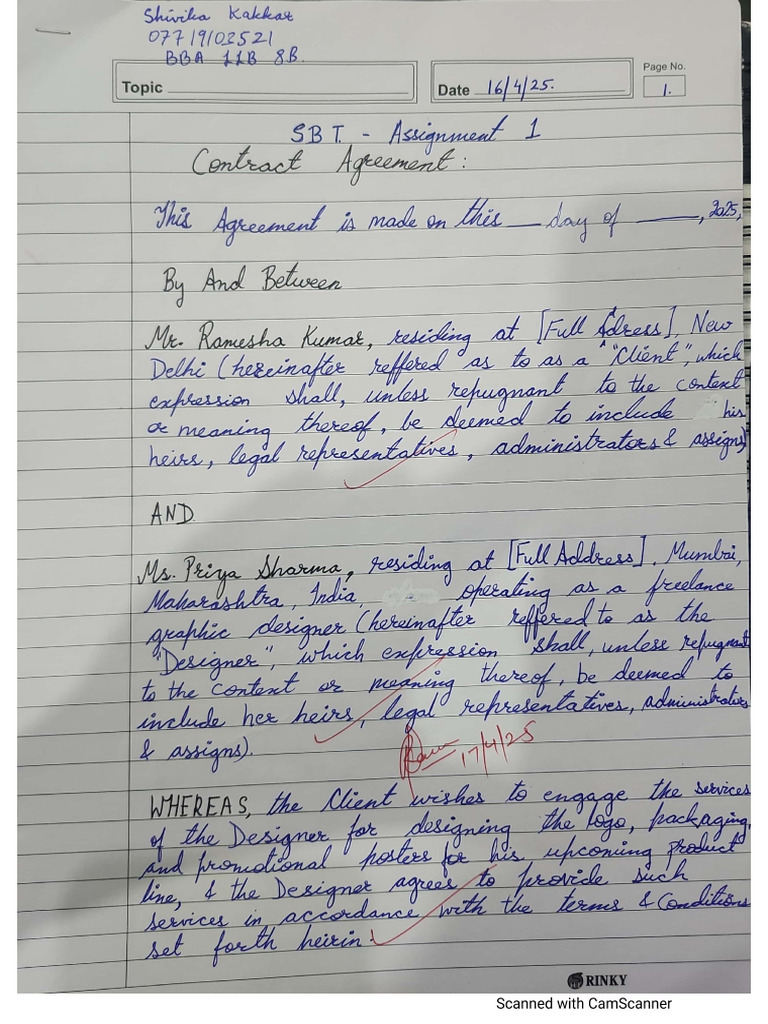 Shivika Kakkar
07719103521
BBA LLB 8B.
Topic
Date 16/4/25.
Page No.
1.
SBT. - Assignment 1
Contract Agreement :
This Agreement is made on this ___ day of _____, 2025,
By And Between
Mr. Ramesha Kumar, residing at [Full Adress], New
Delhi (hereinafter reffered as to as a "Client", which
expression shall, unless repugnant to the context
or meaning thereof, be deemed to include his
heirs, legal representatives, administrators & assigns)
AND
Ms. Priya Sharma, residing at [Full Address], Mumbai,
Maharashtra, India, operating as a freelance
graphic designer (hereinafter reffered to as the
"Designer", which expression shall, unless repugnant
to the context or meaning thereof, be deemed to
include her heirs, legal representatives, administrators
& assigns).
17/4/25
WHEREAS, the Client wishes to engage the services
of the Designer for designing the logo, packaging,
and promotional posters for his upcoming product
line, & the Designer agrees to provide such
services in accordance with the terms & Conditions
set forth heirin.
RINKY
Scanned with CamScanner